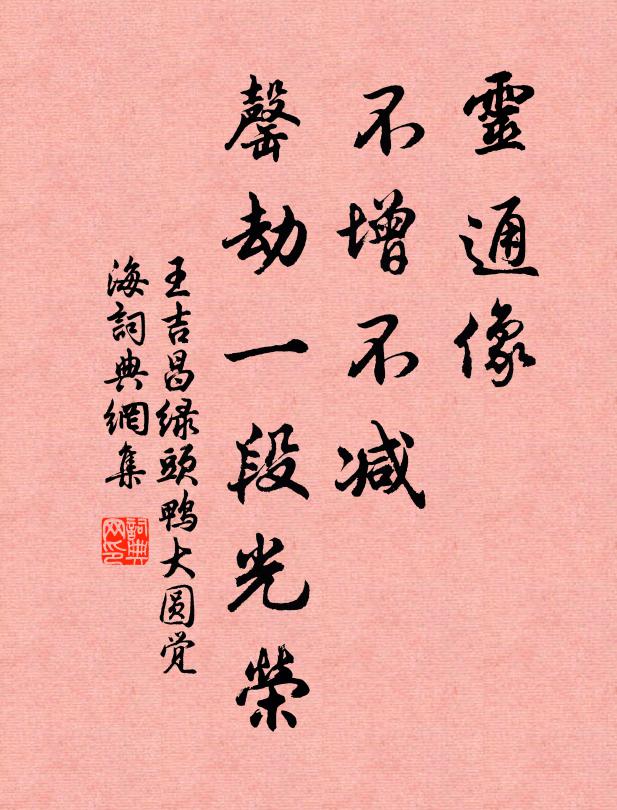 靈通像
不增不减
罄劫一段光榮
王吉昌绿頭鴨大圆觉
海詞典網集
詞典网印